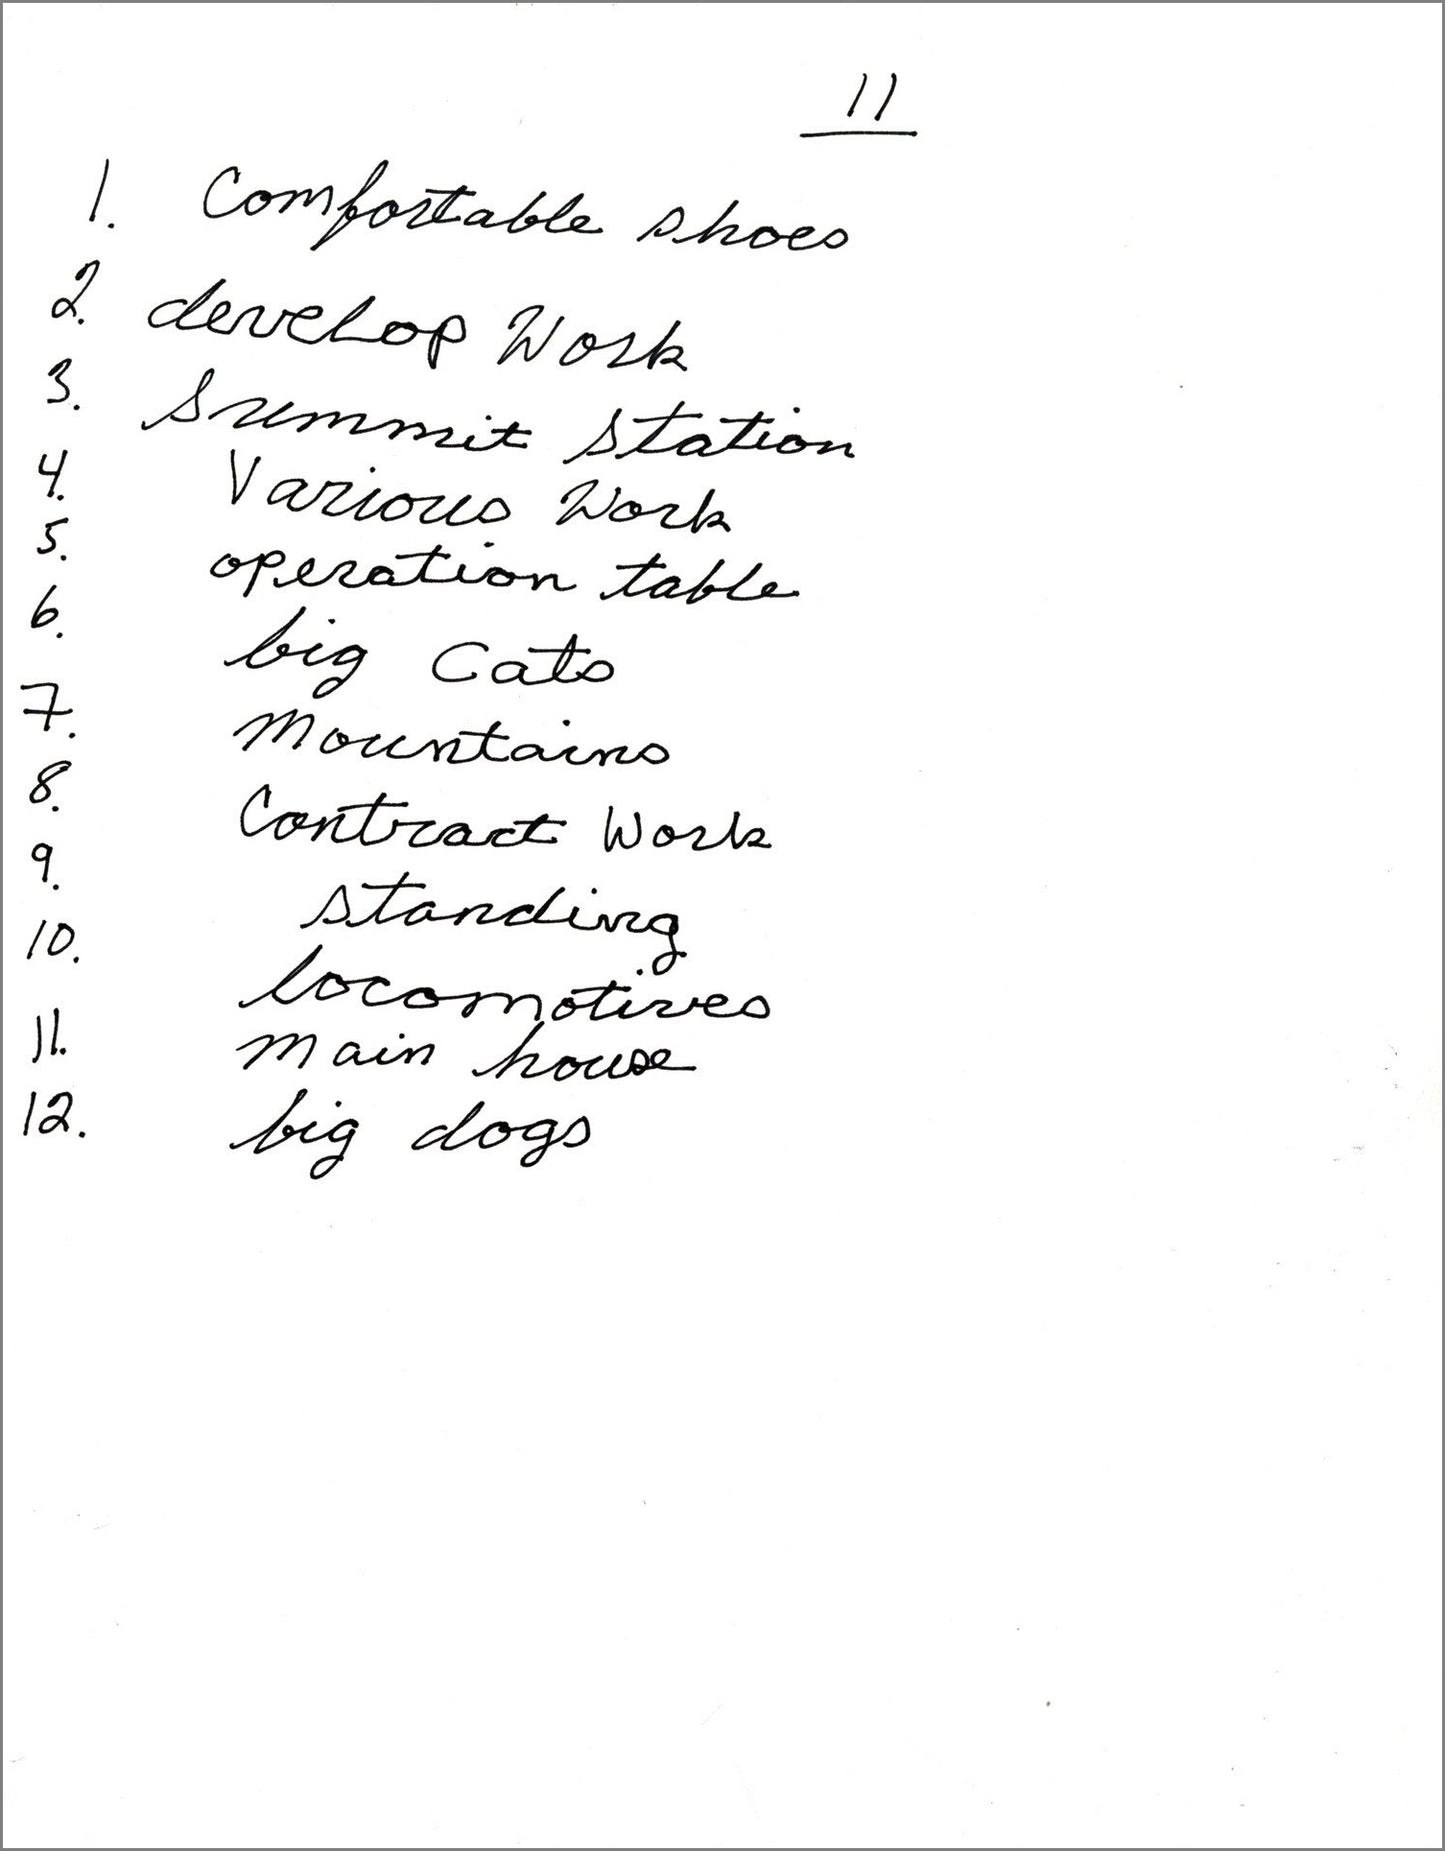 11
1. Comfortable shoes
2. develop Work
3. Summit station
4. Various Work
5. operation table
6. big Cats
7. Mountains
8. Contract Work
9. standing
10. locomotives
11. Main house
12. big dogs